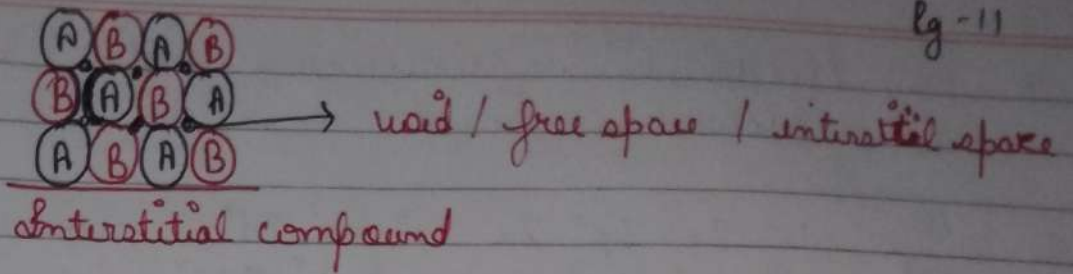 Pg - 11
A B A B
B A B A
A B A B
void / free space / interstitial space
Interstitial compound